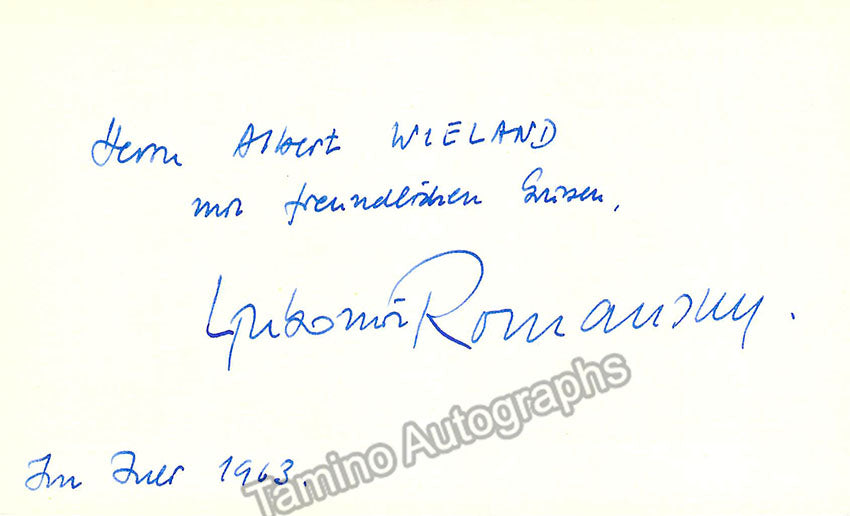 Herrn Albert WIELAND
mit freundlichen Grüssen,
Ljubomir Romansky.
Im 1963.
Tamino Autographs